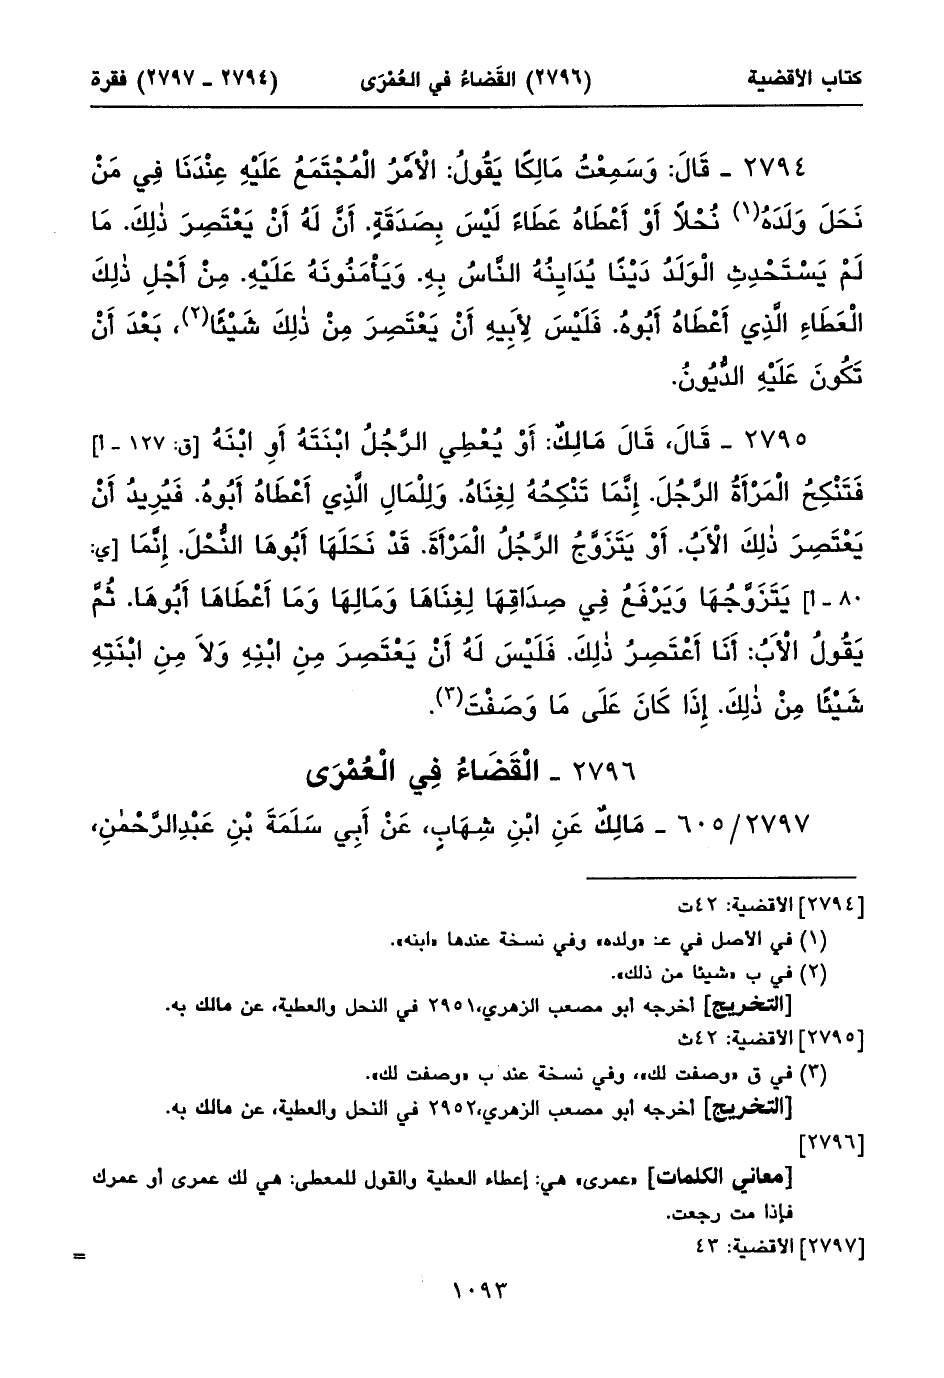 كتاب الأقضية (٢٧٩٦) القَضاءُ في العُمْرَى (٢٧٩٤ ـ ٢٧٩٧) فقرة
٢٧٩٤ ـ قَالَ: وَسَمِعْتُ مَالِكًا يَقُولُ: الْأَمْرُ الْمُجْتَمَعُ عَلَيْهِ عِنْدَنَا فِي مَنْ
نَحَلَ وَلَدَهُ(١) نُحْلاً أَوْ أَعْطَاهُ عَطَاءً لَيْسَ بِصَدَقَةٍ. أَنَّ لَهُ أَنْ يَعْتَصِرَ ذٰلِكَ. مَا
لَمْ يَسْتَحْدِثِ الْوَلَدُ دَيْنًا يُدَايِنُهُ النَّاسُ بِهِ. وَيَأْمَنُونَهُ عَلَيْهِ. مِنْ أَجْلِ ذٰلِكَ
الْعَطَاءِ الَّذِي أَعْطَاهُ أَبُوهُ. فَلَيْسَ لِأَبِيهِ أَنْ يَعْتَصِرَ مِنْ ذٰلِكَ شَيْئًا(٢)، بَعْدَ أَنْ
تَكُونَ عَلَيْهِ الدُّيُونُ.
٢٧٩٥ ـ قَالَ، قَالَ مَالِكٌ: أَوْ يُعْطِي الرَّجُلُ ابْنَتَهُ أَوِ ابْنَهُ [ق: ١٢٧ ـ أ]
فَتَنْكِحُ الْمَرْأَةُ الرَّجُلَ. إِنَّمَا تَنْكِحُهُ لِغِنَاهُ. وَلِلْمَالِ الَّذِي أَعْطَاهُ أَبُوهُ. فَيُرِيدُ أَنْ
يَعْتَصِرَ ذٰلِكَ الْأَبُ. أَوْ يَتَزَوَّجُ الرَّجُلُ الْمَرْأَةَ. قَدْ نَحَلَهَا أَبُوهَا النُّحْلَ. إِنَّمَا [ي:
٨٠ ـ أ] يَتَزَوَّجُهَا وَيَرْفَعُ فِي صِدَاقِهَا لِغِنَاهَا وَمَالِهَا وَمَا أَعْطَاهَا أَبُوهَا. ثُمَّ
يَقُولُ الْأَبُ: أَنَا أَعْتَصِرُ ذٰلِكَ. فَلَيْسَ لَهُ أَنْ يَعْتَصِرَ مِنِ ابْنِهِ وَلاَ مِنِ ابْنَتِهِ
شَيْئًا مِنْ ذٰلِكَ. إِذَا كَانَ عَلَى مَا وَصَفْتَ(٣).
٢٧٩٦ ـ الْقَضَاءُ فِي الْعُمْرَى
٦٠٥/٢٧٩٧ ـ مَالِكٌ عَنِ ابْنِ شِهَابٍ، عَنْ أَبِي سَلَمَةَ بْنِ عَبْدِالرَّحْمٰنِ،
[٢٧٩٤] الأقضية: ٤٢ت
(١) في الأصل في عـ: «ولده» وفي نسخة عندها «ابنه».
(٢) في ب «شيئا من ذلك».
[التخريج] أخرجه أبو مصعب الزهري، ٢٩٥١ في النحل والعطية، عن مالك به.
[٢٧٩٥] الأقضية: ٤٢ث
(٣) في ق «وصفت لك»، وفي نسخة عند ب «وصفت لك».
[التخريج] أخرجه أبو مصعب الزهري، ٢٩٥٢ في النحل والعطية، عن مالك به.
[٢٧٩٦]
[معاني الكلمات] «عمرى» هي: إعطاء العطية والقول للمعطى: هي لك عمرى أو عمرك
فإذا مت رجعت.
[٢٧٩٧] الأقضية: ٤٣
=
١٠٩٣